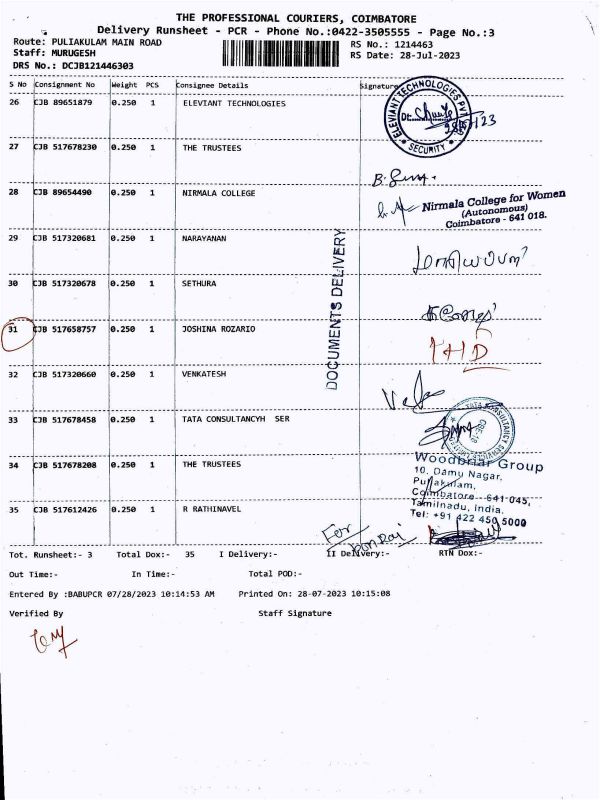 THE PROFESSIONAL COURIERS, COIMBATORE
Delivery Runsheet - PCR - Phone No.:0422-3505555 - Page No.:3
Route: PULIAKULAM MAIN ROAD
Staff: MURUGESH
DRS No.: DCJB121446303
RS No.: 1214463
RS Date: 28-Jul-2023
S No Consignment No Weight PCS Consignee Details Signature
26 CJB 89651879 0.250 1 ELEVIANT TECHNOLOGIES
ELEVIANT TECHNOLOGIES PVT
SECURITY
27 CJB 517678230 0.250 1 THE TRUSTEES
28 CJB 89654490 0.250 1 NIRMALA COLLEGE
Nirmala College for Women
(Autonomous)
Coimbatore - 641 018.
29 CJB 517320681 0.250 1 NARAYANAN
DOCUMENTS DELIVERY
30 CJB 517320678 0.250 1 SETHURA
31 CJB 517658757 0.250 1 JOSHINA ROZARIO
THD
32 CJB 517320660 0.250 1 VENKATESH
33 CJB 517678458 0.250 1 TATA CONSULTANCYH SER
TATA CONSULTANCY SERVICES LIMITED
34 CJB 517678208 0.250 1 THE TRUSTEES
Woodbriar Group
10, Damu Nagar,
Puliakulam,
Coimbatore - 641 045,
Tamilnadu, India.
Tel: +91 422 450 5000
35 CJB 517612426 0.250 1 R RATHINAVEL
For
Tot. Runsheet:- 3 Total Dox:- 35 I Delivery:- II Delivery:- RTN Dox:-
Out Time:- In Time:- Total POD:-
Entered By :BABUPCR 07/28/2023 10:14:53 AM Printed On: 28-07-2023 10:15:08
Verified By Staff Signature